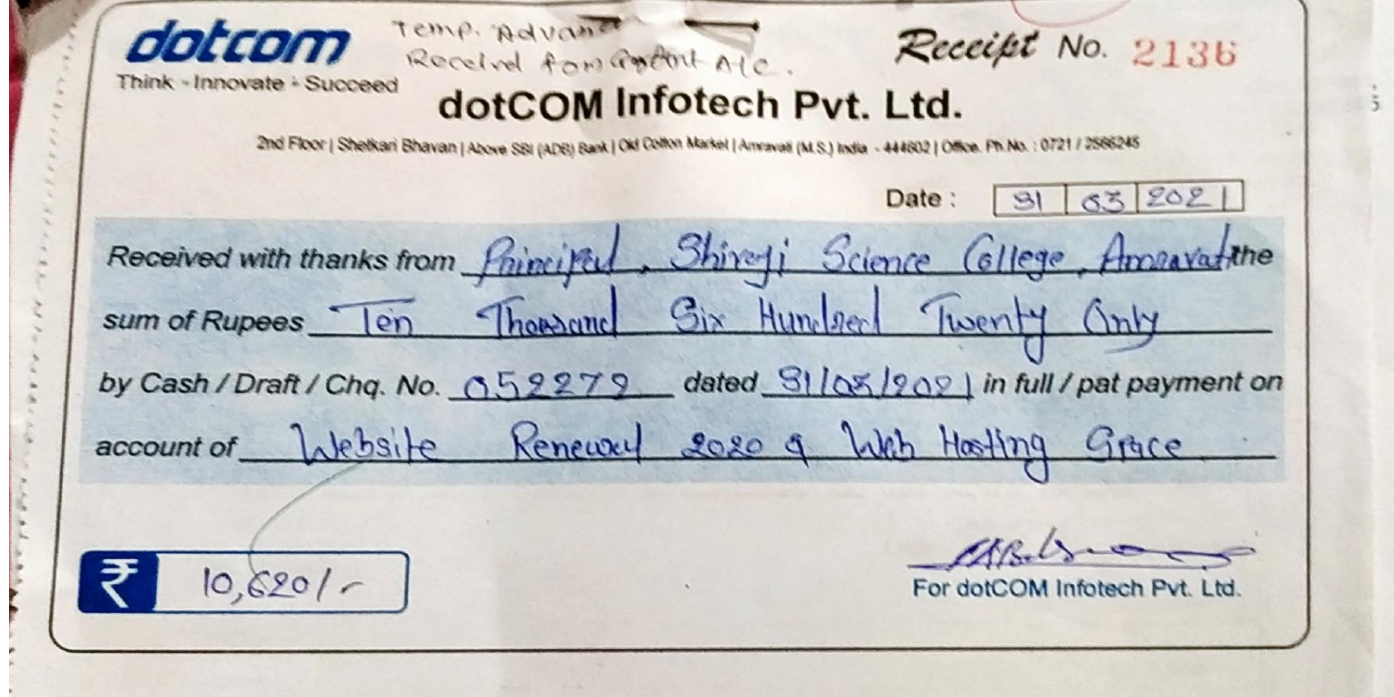 dotcom
Think - Innovate - Succeed
Temp. Advan
Received from Grant A/c.
Receipt No. 2136
dotCOM Infotech Pvt. Ltd.
2nd Floor | Shetkari Bhavan | Above SBI (ADB) Bank | Old Cotton Market | Amravati (M.S.) India - 444602 | Office. Ph.No. : 0721 / 2566245
Date : 31 03 2021
Received with thanks from Principal, Shivaji Science College, Amravati the
sum of Rupees Ten Thousand Six Hundred Twenty Only
by Cash / Draft / Chq. No. 052279 dated 31/03/2021 in full / pat payment on
account of Website Renewal 2020 & Web Hosting Space
₹ 10,620/-
For dotCOM Infotech Pvt. Ltd.